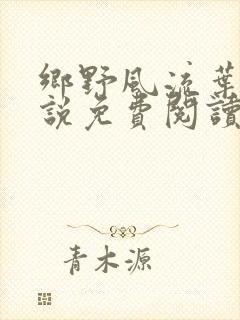 鄉野風流葉
說免費閱讀
青木源